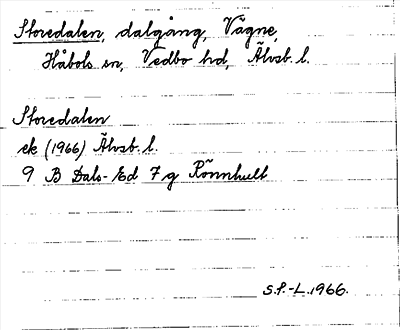 Storedalen, dalgång, Vägne,
Håbols sn, Vedbo hd, Älvsb. l.
Storedalen
ek (1966) Älvsb. l.
9 B Dals-Ed 7 g Rönnhult
S.P.-L. 1966.